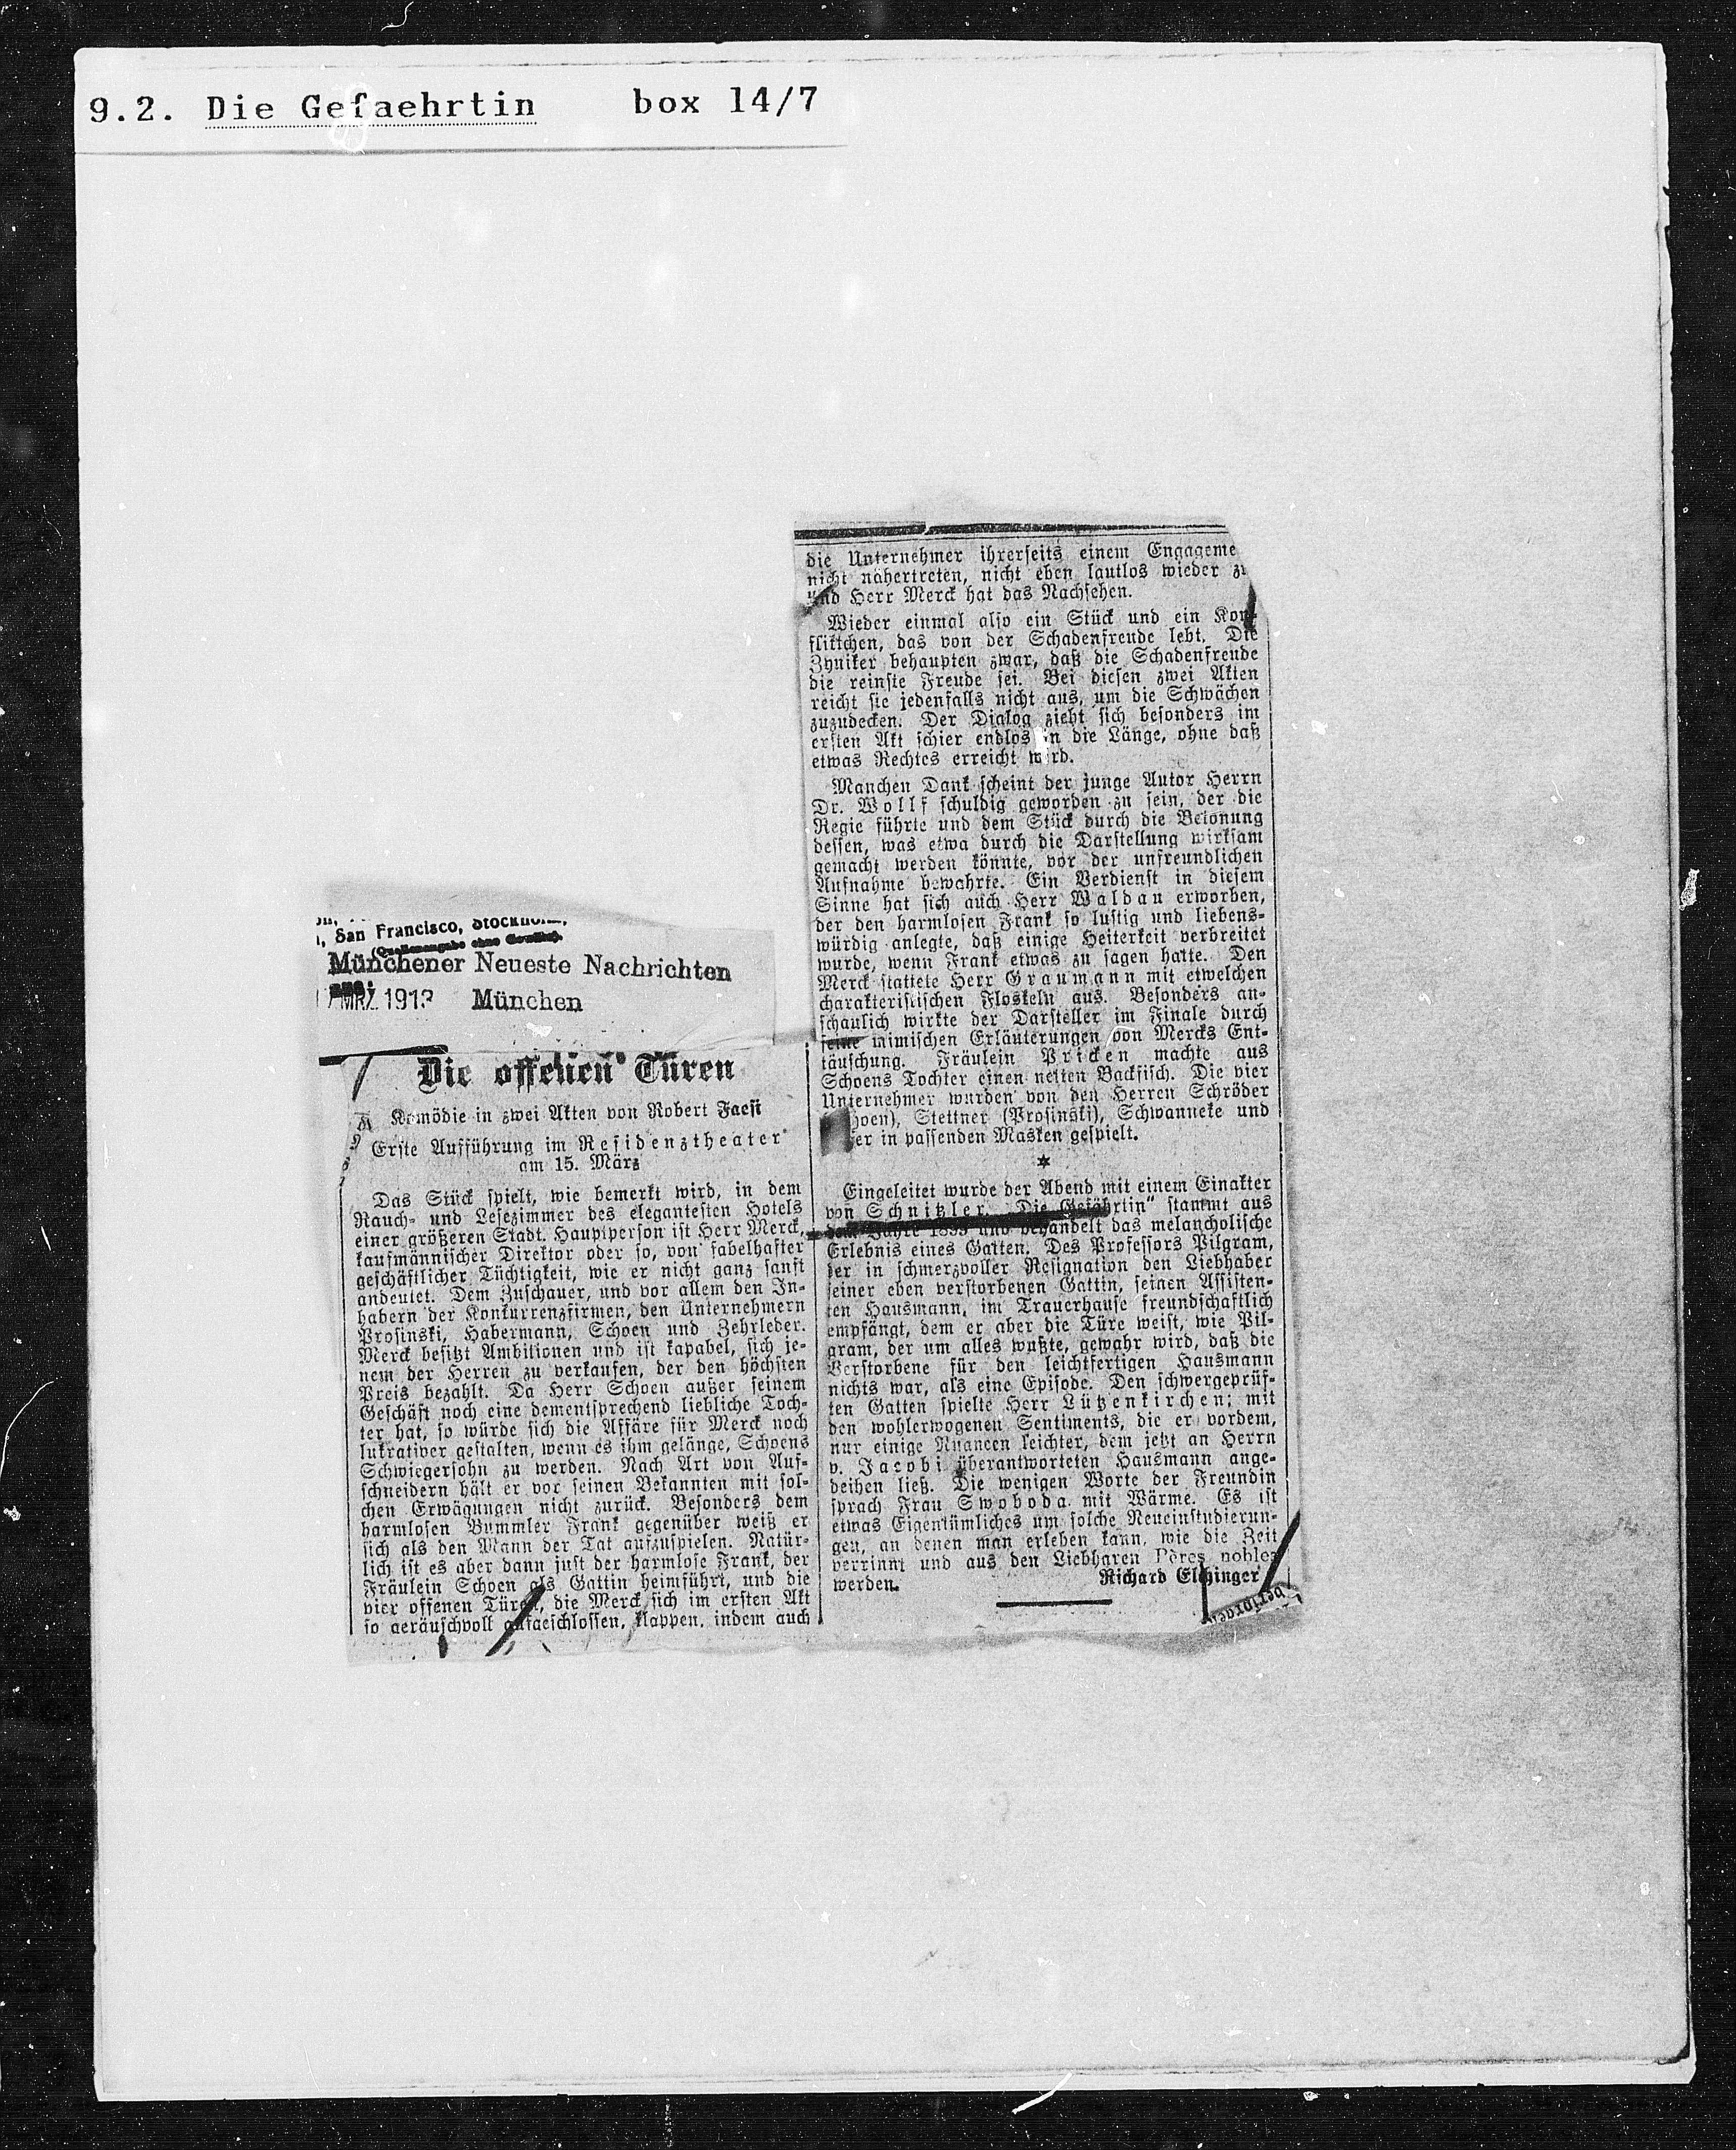 9.2. Die Gefaehrtin box 14/7
San Francisco,
(Quellenangabe ohne Gewähr).
Münchener Neueste Nachrichten
aus:
MRZ. 1913 München
Die offenen Türen
Komödie in zwei Akten von Robert Faesi
Erste Aufführung im Residenztheater
am 15. März
Das Stück spielt, wie bemerkt wird, in dem
Rauch- und Lesezimmer des elegantesten Hotels
einer größeren Stadt. Hauptperson ist Herr Merck,
kaufmännischer Direktor oder so, von fabelhafter
geschäftlicher Tüchtigkeit, wie er nicht ganz sanft
andeutet. Dem Zuschauer, und vor allem den In-
habern der Konkurrenzfirmen, den Unternehmern
Prosinski, Habermann, Schoen und Zehrleder.
Merck besitzt Ambitionen und ist kapabel, sich je-
nem der Herren zu verkaufen, der den höchsten
Preis bezahlt. Da Herr Schoen außer seinem
Geschäft noch eine dementsprechend liebliche Toch-
ter hat, so würde sich die Affäre für Merck noch
lukrativer gestalten, wenn es ihm gelänge, Schoens
Schwiegersohn zu werden. Nach Art von Auf-
schneidern hält er vor seinen Bekannten mit sol-
chen Erwägungen nicht zurück. Besonders dem
harmlosen Bummler Frank gegenüber weiß er
sich als den Mann der Tat aufzuspielen. Natür-
lich ist es aber dann just der harmlose Frank, der
Fräulein Schoen als Gattin heimführt, und die
vier offenen Türen, die Merck sich im ersten Akt
so geräuschvoll aufgeschlossen, klappen, indem auch
die Unternehmer ihrerseits einem Engageme
nicht nähertreten, nicht eben lautlos wieder zu
und Herr Merck hat das Nachsehen.
Wieder einmal also ein Stück und ein Kon-
fliktchen, das von der Schadenfreude lebt. Die
Zyniker behaupten zwar, daß die Schadenfreude
die reinste Freude sei. Bei diesen zwei Akten
reicht sie jedenfalls nicht aus, um die Schwächen
zuzudecken. Der Dialog zieht sich besonders im
ersten Akt schier endlos in die Länge, ohne daß
etwas Rechtes erreicht wird.
Manchen Dank scheint der junge Autor Herrn
Dr. Wollf schuldig geworden zu sein, der die
Regie führte und dem Stück durch die Betonung
dessen, was etwa durch die Darstellung wirksam
gemacht werden könnte, vor der unfreundlichen
Aufnahme bewahrte. Ein Verdienst in diesem
Sinne hat sich auch Herr Waldau erworben,
der den harmlosen Frank so lustig und liebens-
würdig anlegte, daß einige Heiterkeit verbreitet
wurde, wenn Frank etwas zu sagen hatte. Den
Merck stattete Herr Graumann mit etwelchen
charakteristischen Floskeln aus. Besonders an-
schaulich wirkte der Darsteller im Finale durch
seine mimischen Erläuterungen von Mercks Ent-
täuschung. Fräulein Pricken machte aus
Schoens Tochter einen netten Backfisch. Die vier
Unternehmer wurden von den Herren Schröder
hoen), Stettner (Prosinski), Schwanneke und
er in passenden Masken gespielt.
*
Eingeleitet wurde der Abend mit einem Einakter
von Schnitzler. „Die Gefährtin“ stammt aus
dem Jahre 1899 und behandelt das melancholische
Erlebnis eines Gatten. Des Professors Pilgram,
der in schmerzvoller Resignation den Liebhaber
seiner eben verstorbenen Gattin, seinen Assisten-
ten Hausmann, im Trauerhause freundschaftlich
empfängt, dem er aber die Türe weist, wie Pil-
gram, der um alles wußte, gewahr wird, daß die
Verstorbene für den leichtfertigen Hausmann
nichts war, als eine Episode. Den schwergeprüf-
ten Gatten spielte Herr Lützenkirchen; mit
den wohlerwogenen Sentiments, die er vordem,
nur einige Nuancen leichter, dem jetzt an Herrn
v. Jacobi überantworteten Hausmann ange-
deihen ließ. Die wenigen Worte der Freundin
sprach Frau Swoboda mit Wärme. Es ist
etwas Eigentümliches um solche Neueinstudierun-
gen, an denen man erleben kann, wie die Zeit
verrinnt und aus den Liebhabern Pères nobles
werden. Richard Elchinger